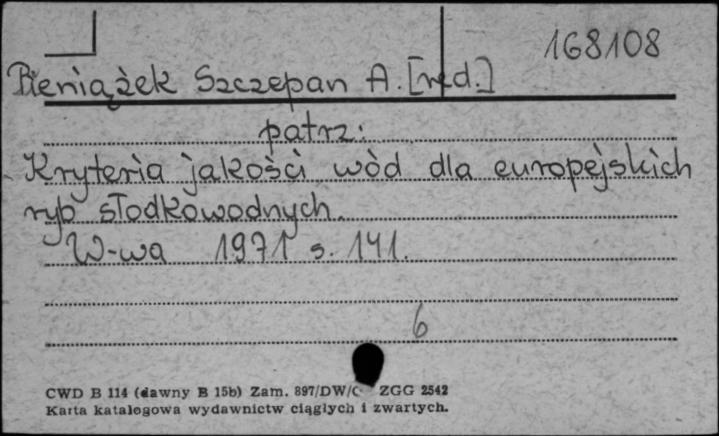 168108
Pieniążek Szczepan A. [red.]
patrz:
Kryteria jakości wód dla europejskich
ryb słodkowodnych.
W-wa 1971 s. 141.
6
CWD B 114 (dawny B 15b) Zam. 897/DW/C ZGG 2542
Karta katalogowa wydawnictw ciągłych i zwartych.